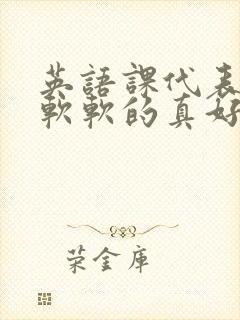 英語課代表
軟軟的真好
荣金庫